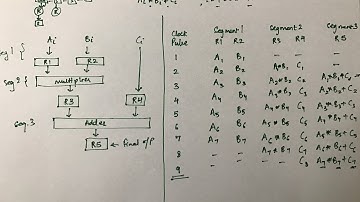 Ai Bi Ci
Seg 1 { R1 R2
Seg 2 { multiplier
R3 R4
Seg. 3 Adder
R5 ← Final o/p
Clock Pulse Segment 1 Segment 2 Segment 3
R1 R2 R3 R4 R5
1 A1 B1 – – –
2 A2 B2 A1*B1 C1 –
3 A3 B3 A2*B2 C2 A1*B1+C1
4 A4 B4 A3*B3 C3 A2*B2+C2
5 A5 B5 A4*B4 C4 A3*B3+C3
6 A6 B6 A5*B5 C5 A4*B4+C4
7 A7 B7 A6*B6 C6 A5*B5+C5
8 – – A7*B7 C7 A6*B6+C6
9 – – – A7*B7+C7